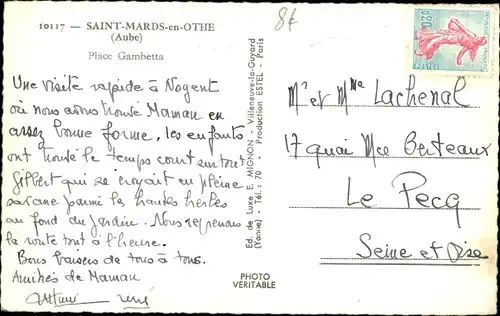 10117 — SAINT-MARDS-en-OTHE
(Aube)
Place Gambetta
8€
0,20
POSTES
Une visite rapide à Nogent
où nous avons trouvé Maman en
assez bonne forme. les enfants
ont trouvé le temps court surtout
Gilbert qui se croyait en pleine
savane parmi les hautes herbes
au fond du jardin. Nous reprenons
la route tout à l'heure.
Bons baisers de tous à tous.
Amitiés de Maman
rené
Ed. de Luxe E. MIGNON - Villeneuve-la-Guyard
(Yonne) - Tél. : 70 - Production ESTEL - Paris
PHOTO
VERITABLE
Mr et Mme Lachenal
17 quai Mce Berteaux
Le Pecq
Seine et Oise